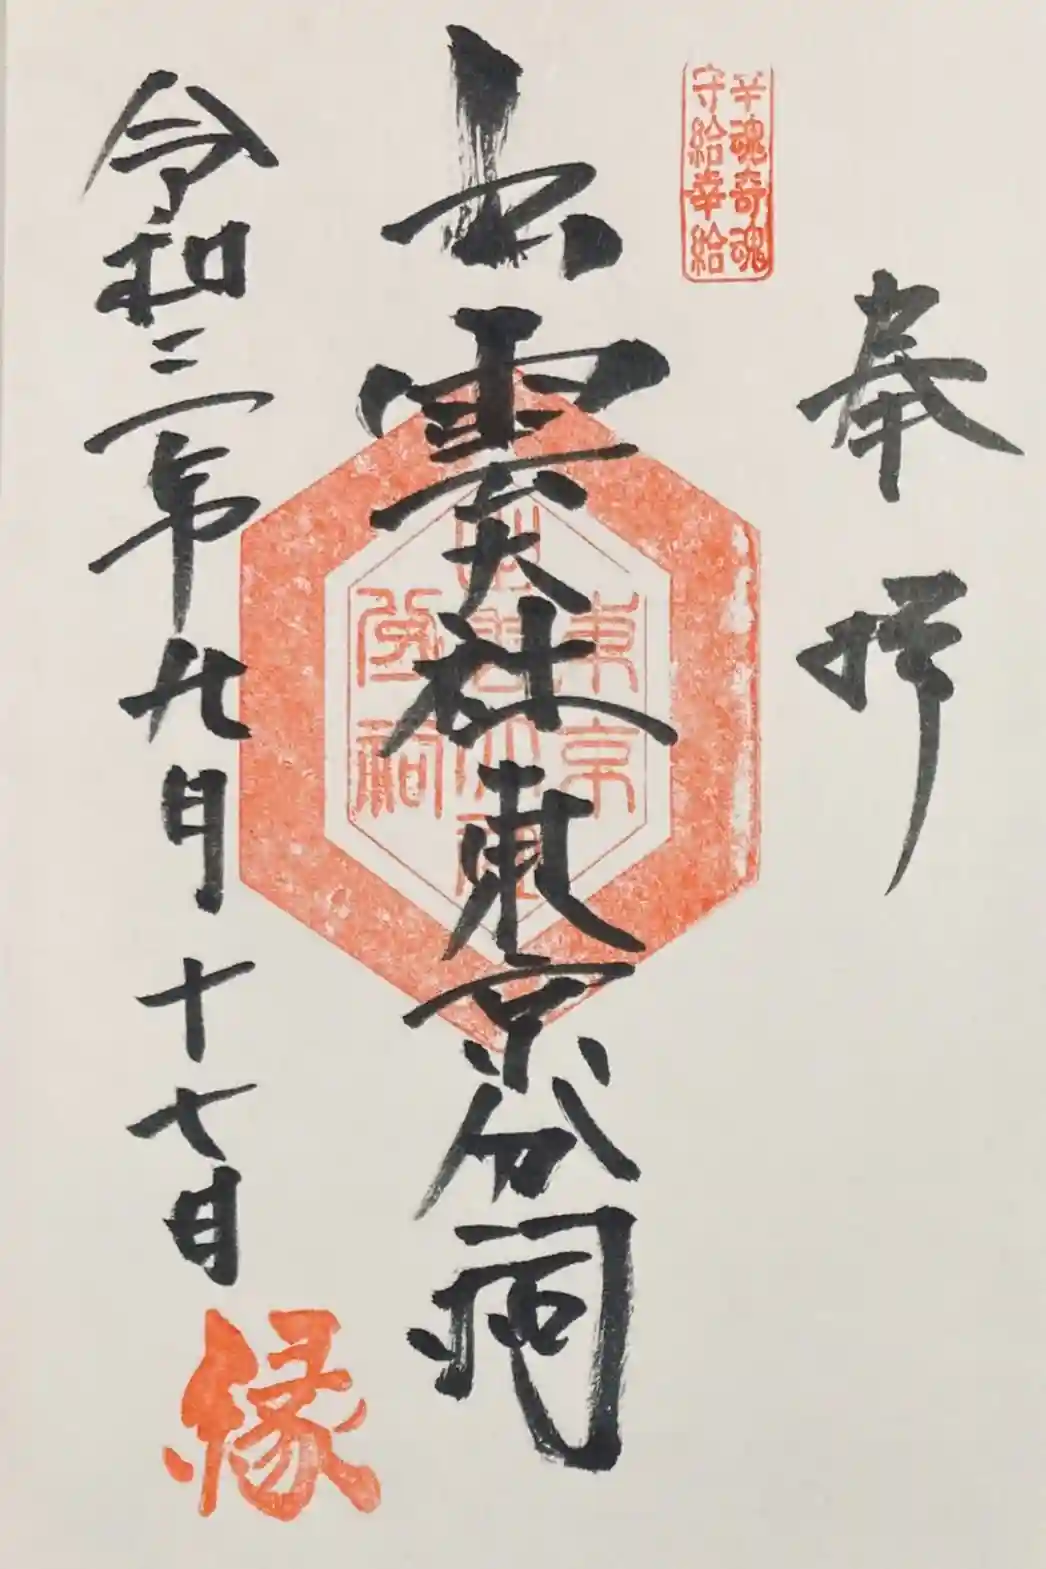 奉拝
幸魂奇魂
守給幸給
出雲大社東京分祠
東京
分祠
令和三年九月十七日
縁